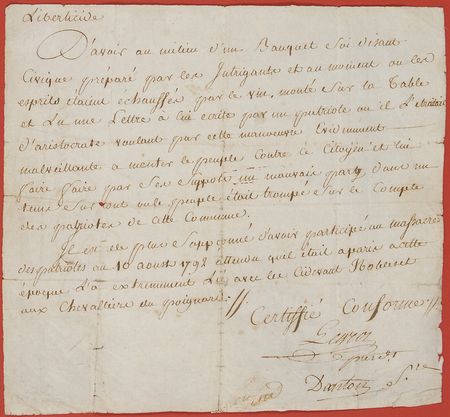 Liberticide
D'avoir au milieu d'un Banquet Soi disant
Civique préparé par les Intrigants et au moment ou les
esprits étaient échauffés par le vin, monté sur la Table
et Lu une Lettre à lui écrite par un patriote ou il
d'aristocrate voulant par cette manoeuvre Evidemment
malveillante ameuter le peuple Contre ce Citoyen et lui
faire faire par Ses Suppots un mauvais party dans un
tems surtout ou le peuple était trompé sur le Compte
des patriotes de Cette Commune.
Il est de plus Soupçonné d'avoir participé au massacre
des patriotes au 10 aoust 1792 attendu qu'il était a paris a cette
époque L'a extremement Lié avec les Cidevant Nobles et
aux Chevalliers du poignard. //
Certiffié Conforme //.
Danton S.re